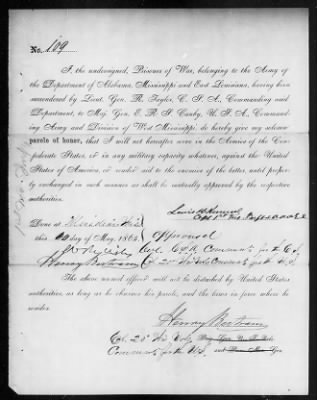 No. 109
I, the undersigned, Prisoner of War, belonging to the Army of
the Department of Alabama, Mississippi and East Louisiana, having been
surrendered by Lieut. Gen. R. Taylor, C. S. A., Commanding said
Department, to Maj. Gen. E. R. S. Canby, U. S. A., Commanding
Army and Division of West Mississippi, do hereby give my solemn
parole of honor, that I will not hereafter serve in the Armies of the Con-
federate States, or in any military capacity whatever, against the United
States of America, or render aid to the enemies of the latter, until proper-
ly exchanged in such manner as shall be mutually approved by the respective
authorities.
Done at Meridian Miss
this 10 day of May, 1865. Approved
Henry Bertram Col. 20" Wis Vols Commsr for the U.S.
The above named officer will not be disturbed by United States
authorities, as long as he observes his parole, and the laws in force where he
resides.
Henry Bertram
Col. 20" Wis Vols Brig. Gen. U. S. Vols
Commsr for the U.S.